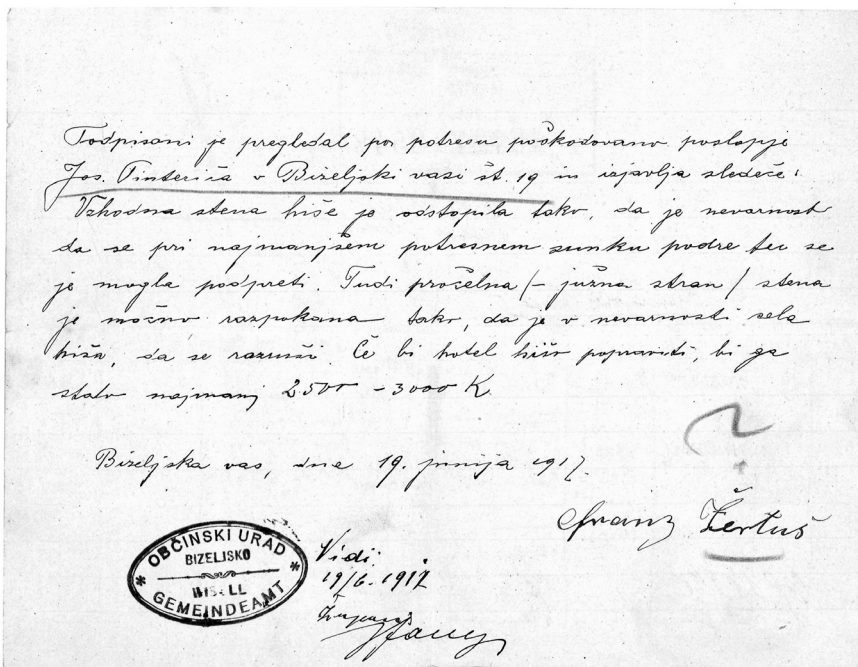 Podpisani je pregledal po potresu poškodovano poslopje
Jos. Pinteriča v Bizeljski vasi št. 19 in izjavlja sledeče:
Vzhodna stena hiše je odstopila tako, da je nevarnost
da se pri najmanjšem potresnem sunku podre ter se
je mogla podpreti. Tudi pročelna /- južna stran / stena
je močno razpokana tako, da je v nevarnosti cela
hiša, da se razruši Če bi hotel hišo popraviti, bi ga
stalo najmanj 2500 - 3000 K.
Bizeljska vas, dne 19. junija 1917.
Franz Žertuš
OBČINSKI URAD
BIZELJSKO
WISELL
GEMEINDEAMT
Vidi:
19/6. 1917
Župan: